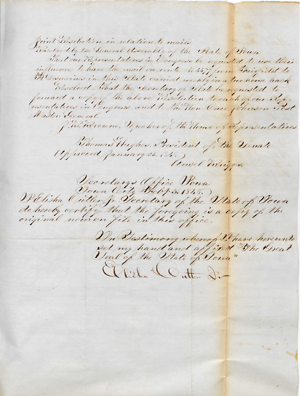 Joint Resolution in relation to mails
Resolved by the General Assembly of the State of Iowa
That our Representatives in Congress be requested to use their
influence to have the mail on route from Fairfield to
in this State carried weekly in two horse
Resolved That the Secretary of State be requested to
forward a copy of the above resolution to each of our Rep-
resentatives in Congress and to the Hon Cave Johnson Post
Master General
Speaker of the House of Representatives
Thomas Hughes President of the Senate
Approved January
Ansel Briggs
Secretarys Office Iowa
Iowa City
I Elisha Cutler Jr Secretary of the State of Iowa
do hereby certify that the foregoing is a copy of the
original now on file in this office.
In Testimony whereof I have hereunto
set my hand and affixed "The Great
Seal of the State of Iowa"
Elisha Cutler Jr